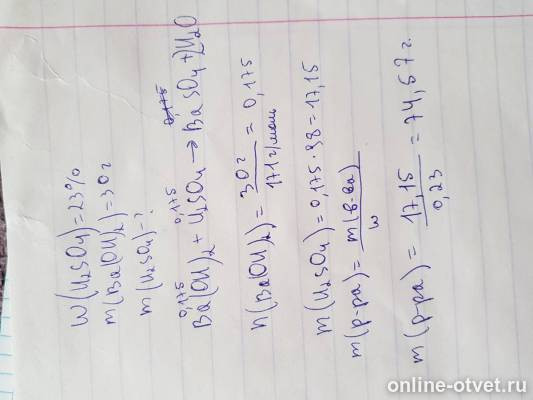 W(H₂SO₄)=23%
m(Ba(OH)₂)=30г
m(H₂SO₄)-?
0,175 0,175 0,175
Ba(OH)₂+H₂SO₄→BaSO₄+2H₂O
n(Ba(OH)₂)=30г/171г/моль=0,175
m(H₂SO₄)=0,175·98=17,15
m(р-ра)=m(в-ва)/w
m(р-ра)=17,15/0,23=74,57г.
online-otvet.ru